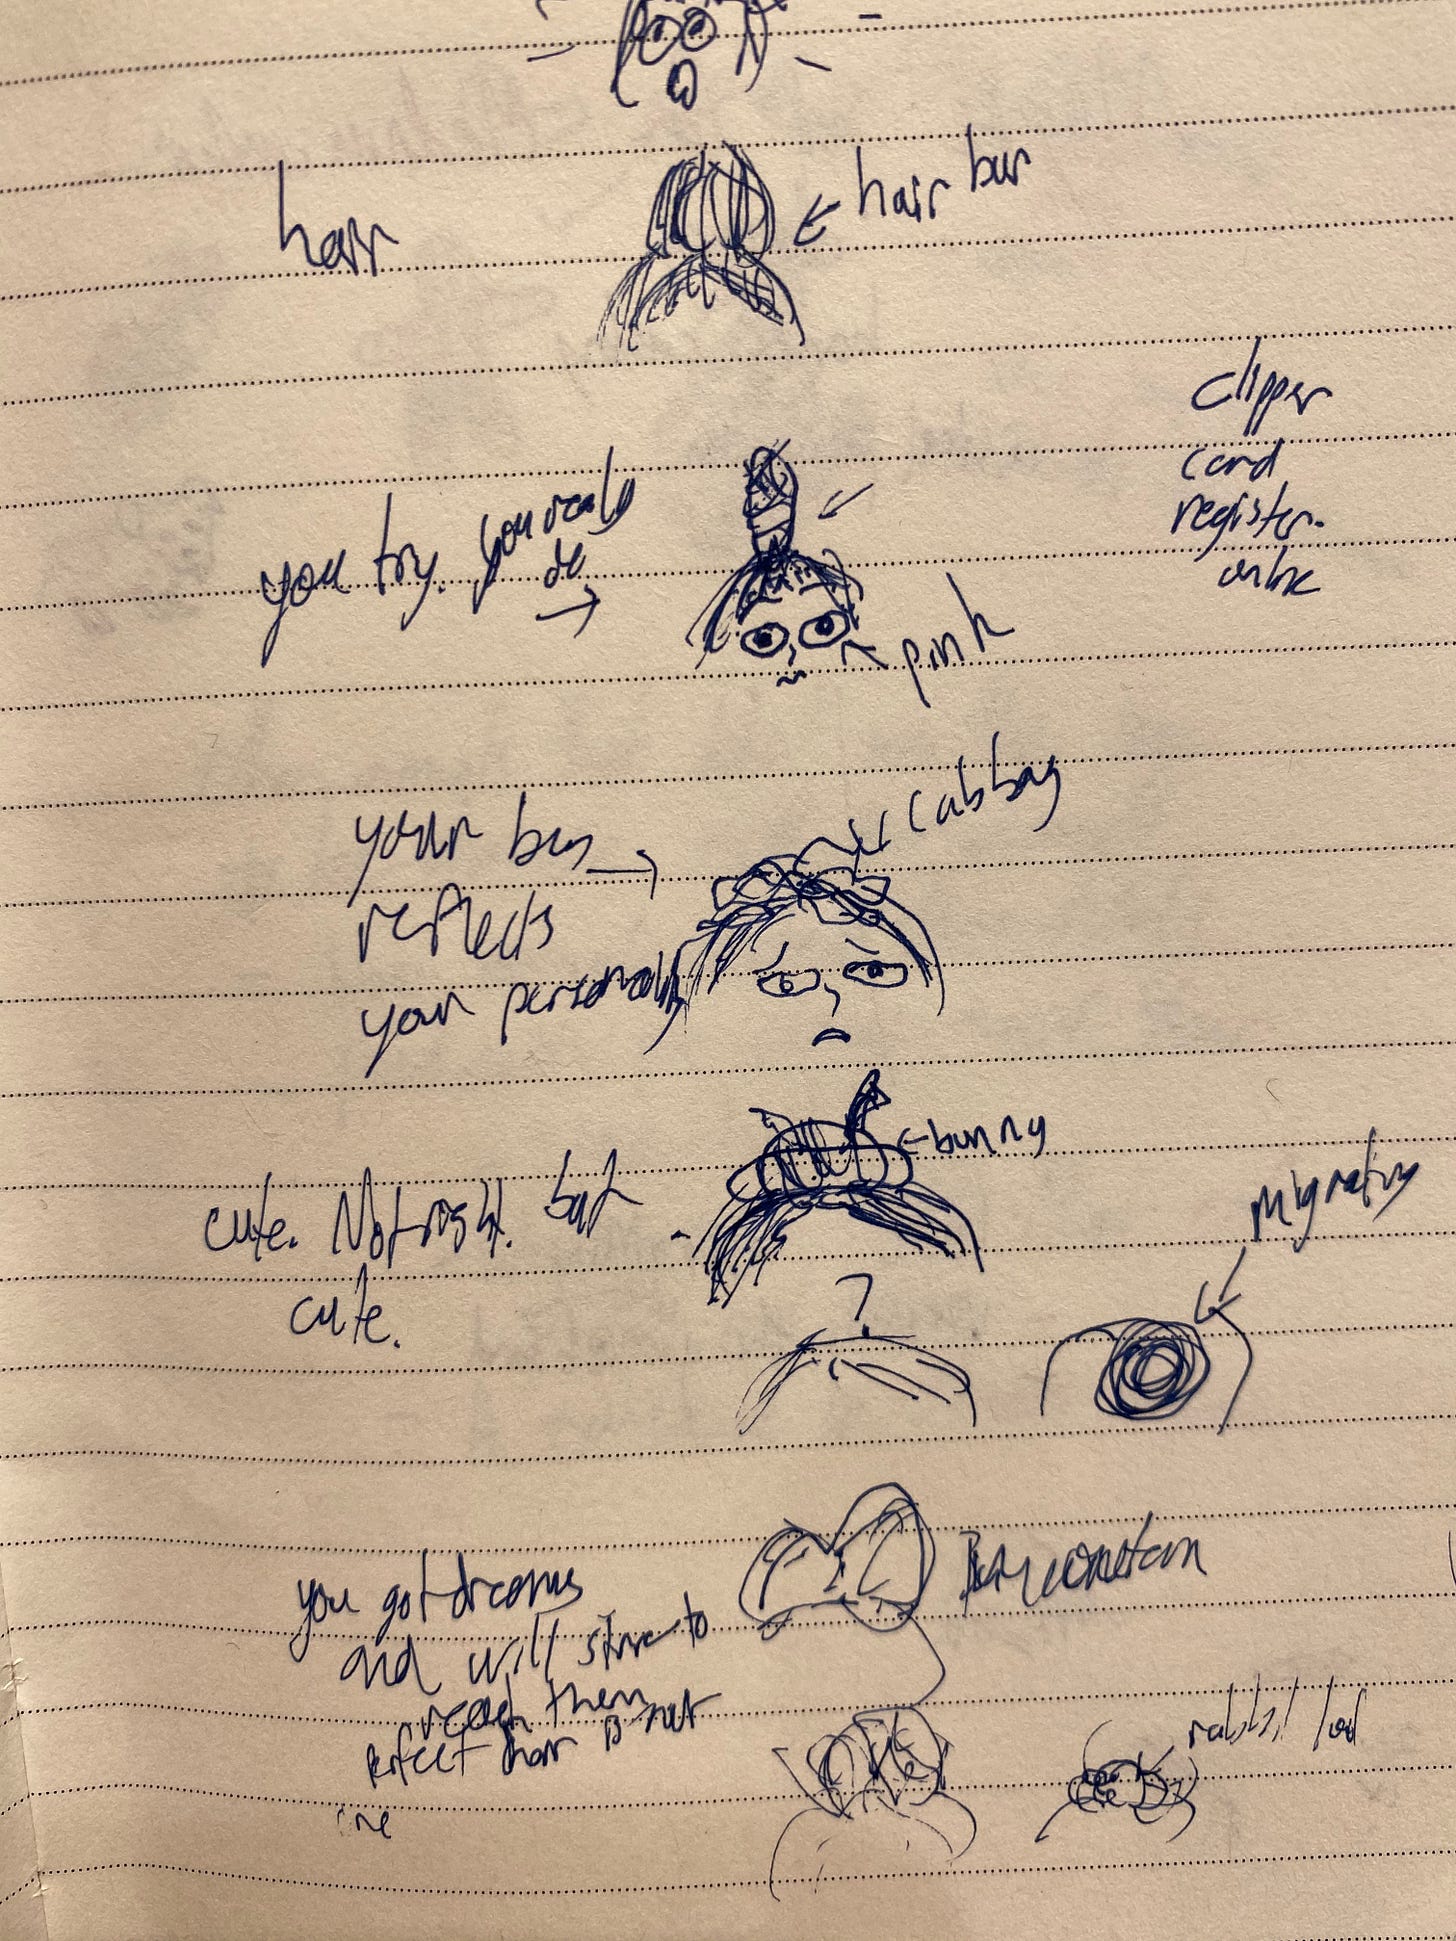 hair
hair bun
clipper
card
register
online
you try. you really
do
pink
cabbag
your bun
reflects
your personality
bunny
cute. Not right. but
cute.
migrating
?
you got dreams
and will strive to
reach them
perfect hair is not
one